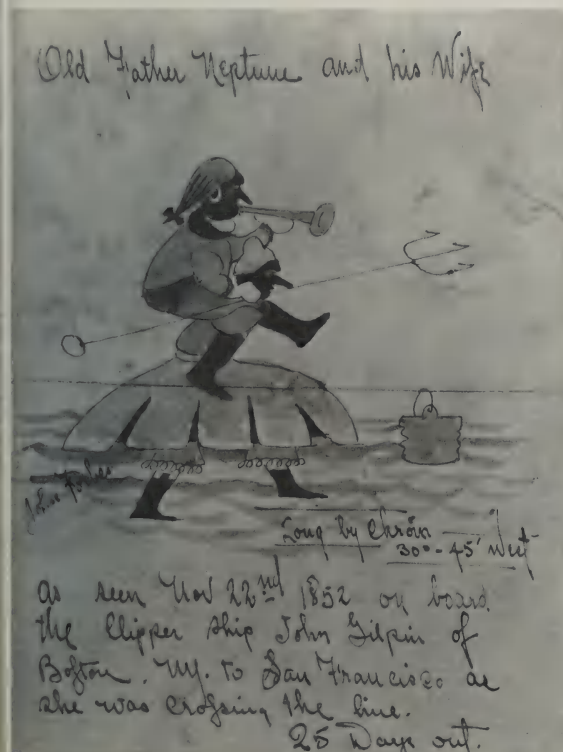 Old Father Neptune and his Wife
John Forbes
Long by Chron
30° - 45' West
as seen Nov 22nd 1852 on board
the Clipper Ship John Gilpin of
Boston. NY. to San Francisco as
she was crossing the line.
25 Days out.